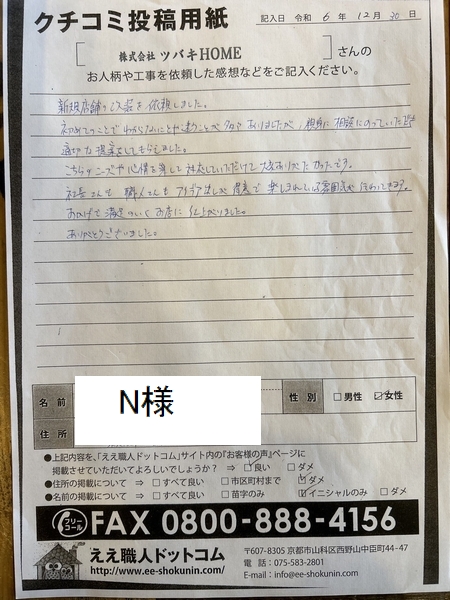 クチコミ投稿用紙
記入日 令和 6 年 12 月 30 日
株式会社 ツバキHOME さんの
お人柄や工事を依頼した感想などをご記入ください。
新規店舗の改装を依頼しました。
初めてのことでわからないことや迷うことも多々ありましたが、親身に相談にのっていただき
適切な提案をしてもらえました。
こちらのニーズや心情を察して対応していただけて大変ありがたかったです。
社長さんも職人さんも
おかげで満足のいくお店に仕上がりました。
ありがとうございました。
名前 N様 性別 □男性 ☑女性
住所
●上記内容を、「ええ職人ドットコム」サイト内の『お客様の声』ページに
掲載させていただいてよろしいでしょうか？ ⇒ ☑良い □ダメ
●住所の掲載について ⇒ □すべて良い □市区町村まで ☑ダメ
●名前の掲載について ⇒ □すべて良い □苗字のみ ☑イニシャルのみ □ダメ
フリーコール FAX 0800-888-4156
ええ職人ドットコム
http://www.ee-shokunin.com/
〒607-8305 京都市山科区西野山中臣町44-47
電 話：075-583-2801
E-mail：info@ee-shokunin.com